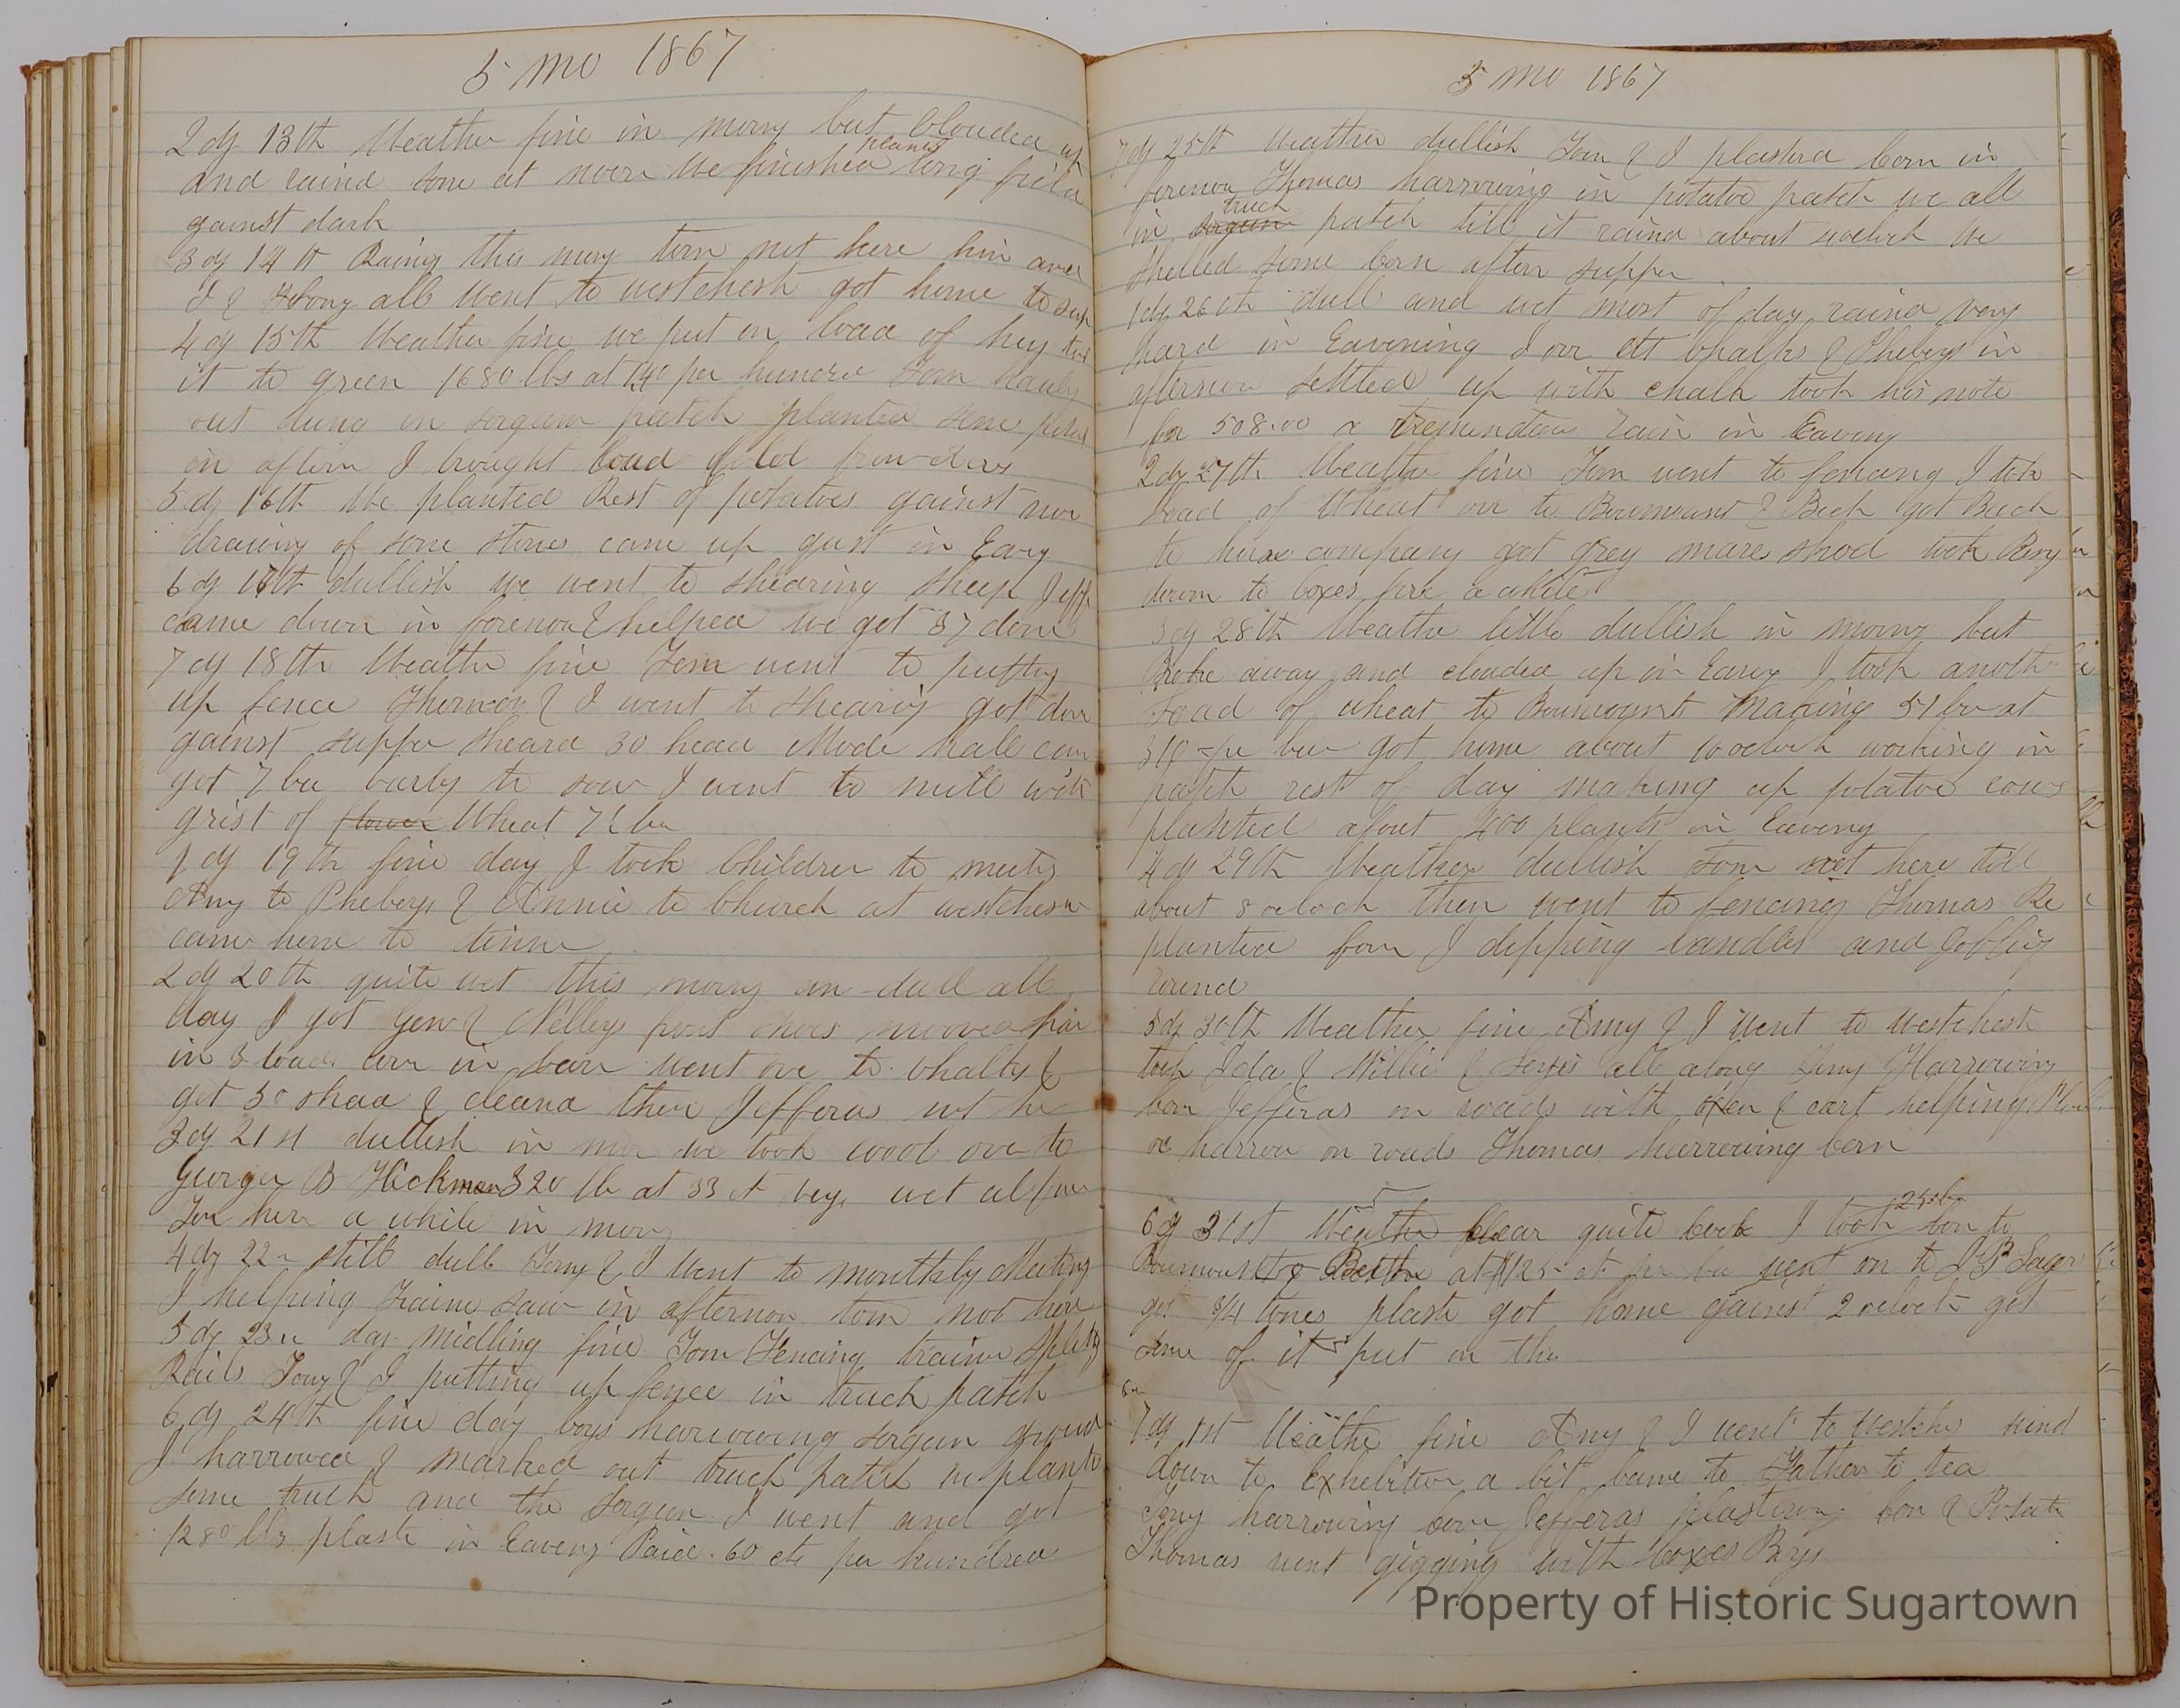 5 mo 1867
2 dy 13th Weather fine in morng but Clouded up
and raind some at noon We finished planting long field
gainst dark
3 dy 14th Raing this morng tom not here him and
I & all Went to westchest got home to sup
4 dy 15th Weather fine we put on load of hay tok
it to green 1680 lbs at 140 per hundred Tom hauling
out dung on sorgum patch planted some potat
in aftern I brought load of
5 dy 16th We planted Rest of potatoes gainst noon
drawing of some stones came up gust in Eavg
6 dy 17th dullish we went to shearing sheep Jeff
came down in forenoon & helped we got 37 done
7 dy 18th Weather fine Tom went to putting
up fence Thomas & I went to shearing got done
gainst supper sheard 30 head Mode hall cam
got 7 bu barly to sow I went to mill with
grist of flower Wheat 7 1/2 bu
1 dy 19th fine day I took Children to meeting
Amy to Phebeys & Annie to Church at westchest
came home to dinner
2 dy 20th quite wet this morng an dull all
day I got Gen & Nelleys front shoes
in 3 loads corn in barn went ove to Chalks &
got 30 shad & cleand them Jefferas not he
3 dy 21st dullish in mor we took wool ove to
George B Hickman 320 lb at 33 ct very wet al fore
Tom here a while in morng
4 dy 22n still dull Tony & I Went to monthly Meeting
I helping Traine saw in afternon tom not here
5 dy 23n day midling fine Tom Fencing traine Spliting
Rails Tony & I putting up fence in truck patch
6 dy 24th fine day boys harrowing sorgum ground
I harrowed & marked out truck patch we plante
some truck and the Sorgum I went and got
1280 lbs plastr in Eaveng Paid .60 cts per hundred
5 mo 1867
7 dy 25th Weather dullish Tom & I plasterd Corn in
forenon Thomas harrowing in potatoe patch we all
in sorgum truck patch till it raind about We
shelled some Corn after supper
1 dy 26th dull and wet most of day raind very
hard in Eavening I ovr att Chalks & Phebeys in
afternon Settled up with Chalk took his note
for 508.00 a tremendious Rain in Eaveng
2 dy 27th Weather fine Tom went to fencing I tok
load of Wheat ovr to Bowmount & Beck got Back
to company got grey mare shod took Amy
down to boxes fore a while
3 dy 28th Weathe little dullish in morng but
Broke away and clouded up in Eaveg I took anothe
Load of wheat to Boumounts Making 51 bu at
310 pe bu got home about 10 oclock working in
patch rest of day making up potatoe rows
planted about 400 plants in Eaveng
4 dy 29th Weather dullish Tom not here till
about 8 oclock then went to fencing Thomas Re
planted Corn I dipping Candles and Jobbing
round
5 dy 30th Weather fine Amy & I Went to Westchest
took Ida & Willie & all along Tony Harrowing
Corn Jefferas on roads with oxen & cart helping
or harrow on roads Thomas harrowing Corn
6 dy 31st Weathe Clear quite Cool I took 25 bu Con to
Boumounts & Beithe at $125 ct per bu went on to
got 3/4 tones plastr got home gainst 2 oclock got
some of it put on the
7 dy 1st Weathe fine Amy & I went to Westches
down to Exhebition a bit Came to Fathers to tea
Tony harrowing Corn Jefferas plastering Con & Potate
Thomas went gigging with boxes Boys
Property of Historic Sugartown